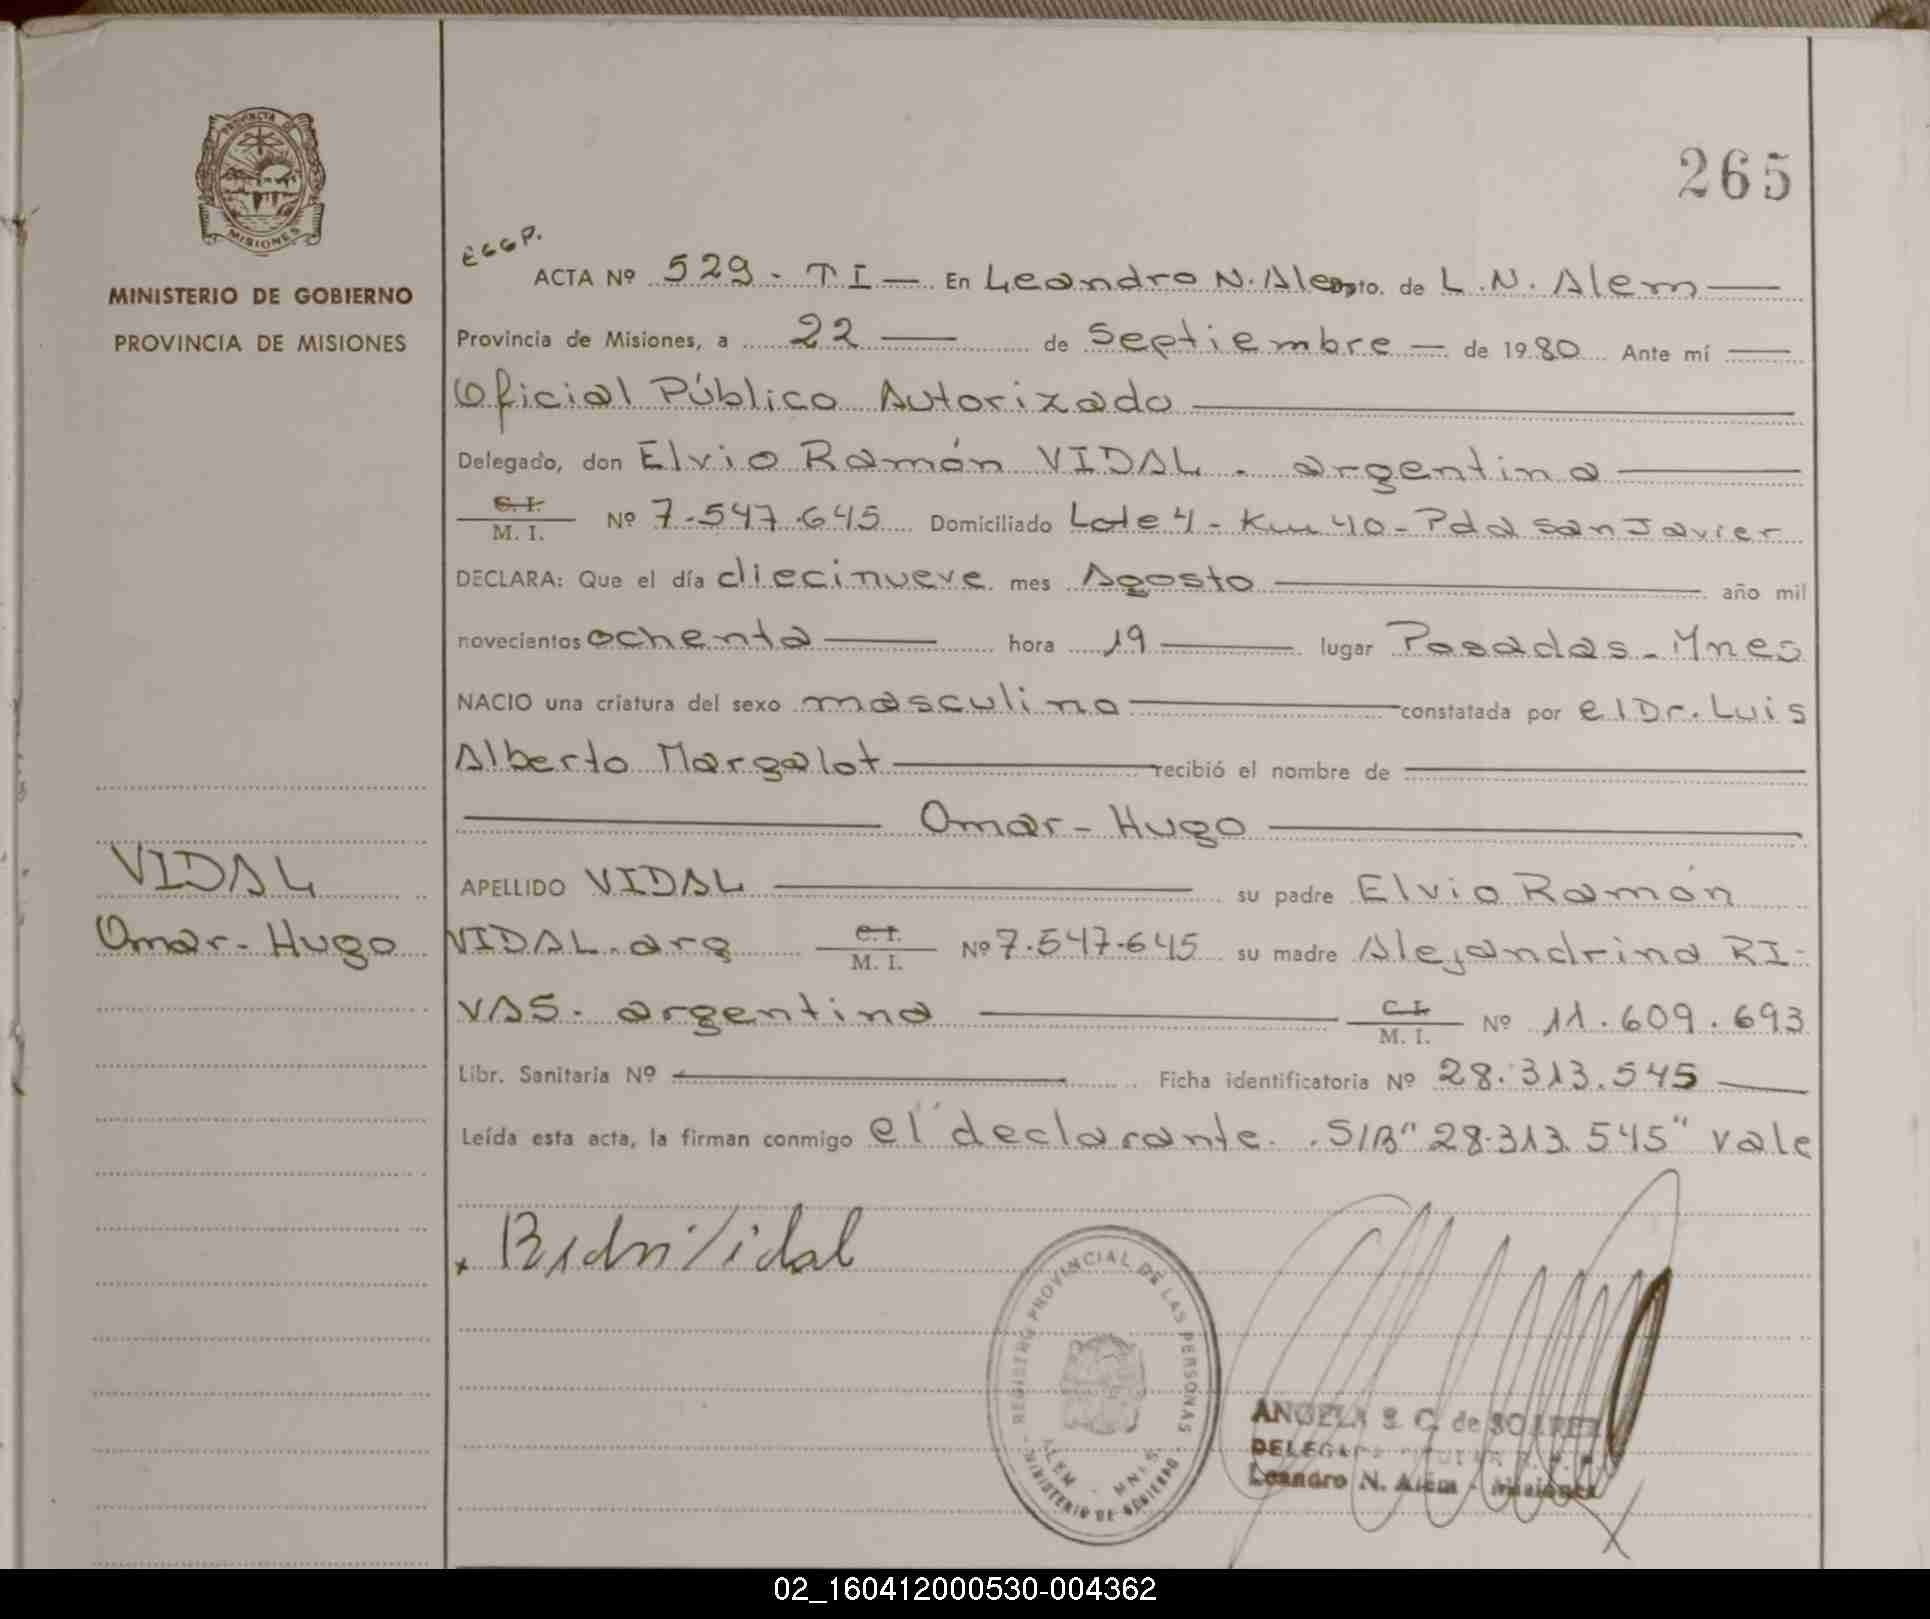 PROVINCIA DE
MISIONES
MINISTERIO DE GOBIERNO
PROVINCIA DE MISIONES
VIDAL
Omar-Hugo
265
ACTA Nº 529 - T I — En Leandro N. Alem Dpto. de L. N. Alem —
Provincia de Misiones, a 22 — de Septiembre — de 1980 Ante mí —
Oficial Público Autorizado —
Delegado, don Elvio Ramón VIDAL. argentino —
C. I.
M. I. Nº 7.547.645 Domiciliado Lote 4 - Km 40 - Pda San Javier
DECLARA: Que el día diecinueve mes Agosto — año mil
novecientos ochenta — hora 19 — lugar Posadas - Mnes
NACIO una criatura del sexo masculino — constatada por el Dr. Luis
Alberto Margalot — recibió el nombre de —
— Omar - Hugo —
APELLIDO VIDAL — su padre Elvio Ramón
VIDAL. arg C. I.
M. I. Nº 7.547.645 su madre Alejandrina RI-
VAS. argentina — C. I.
M. I. Nº 11.609.693
Libr. Sanitaria Nº — Ficha identificatoria Nº 28.313.545 —
Leída esta acta, la firman conmigo el declarante. S/B "28.313.545" vale
Vidal
REGISTRO PROVINCIAL DE LAS PERSONAS
ALEM - MNES.
MINISTERIO DE GOBIERNO
ANGELA S. C. de SOAREZ
Leandro N. Alem - Misiones
02_160412000530-004362